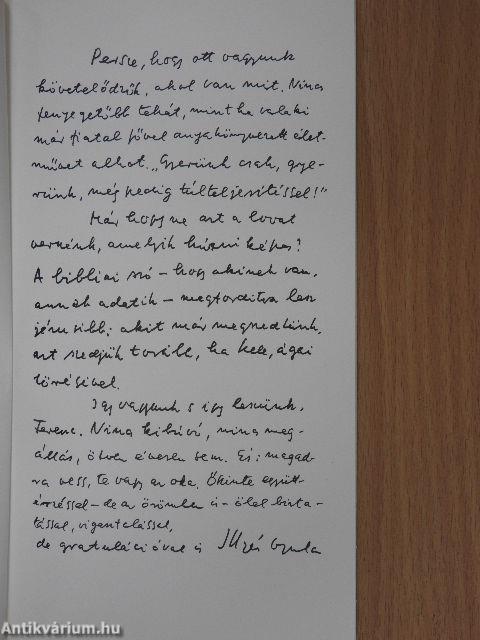 Persze, hogy ott vagyunk
követelődzők, ahol van mit. Nincs
fenyegetőbb tehát, mintha valaki
már fiatal fővel anyakönyvezett élet-
művet alkot. „Gyerünk csak, gye-
rünk, még pedig túlteljesítéssel!"
Már hogy ne azt a lovat
vernénk, amelyik húzni képes?
A bibliai szó – hogy akinek van,
annak adatik – megfordítva lesz
jézusibb: akit már megszedtünk,
azt szedjük tovább, ha kell, ágai
törésével.
Igy vagyunk s igy leszünk,
Ferenc. Nincs kibúvó, nincs meg-
állás, ötven évesen sem. És: magad-
ra vess, te vagy az oka. Őszinte együtt-
érzéssel – de az örömben is – ölel bizta-
tással, vigasztalással,
de gratulációval is Illyés Gyula
Antikvárium.hu